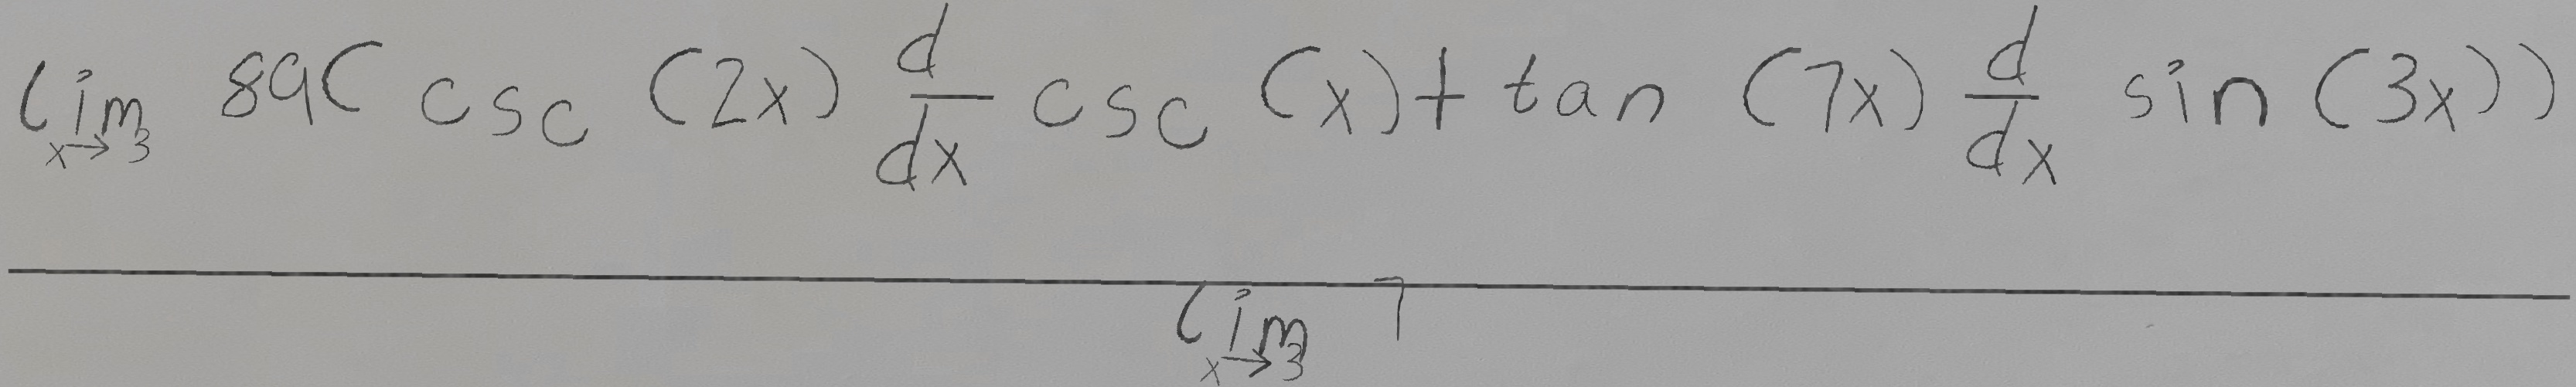 lim x→3 89(csc (2x) d/dx csc (x) + tan (7x) d/dx sin (3x))
lim x→3 7